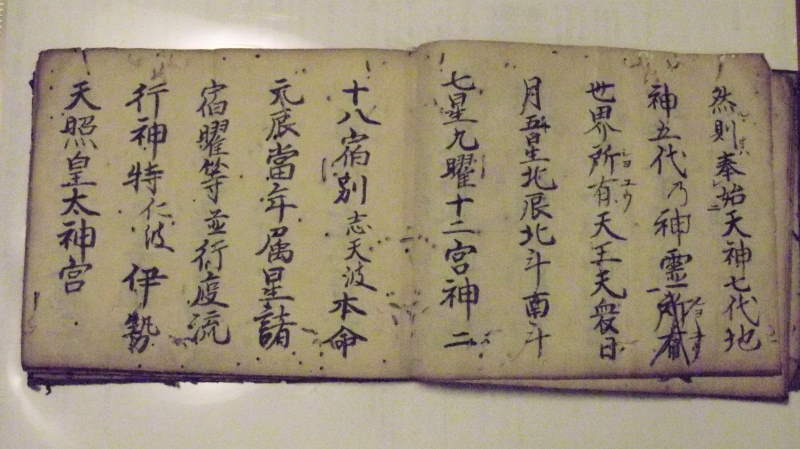 然則奉始天神七代地
神五代乃神靈
世界所有天王天衆日
月五星北辰北斗南斗
七星九曜十二宮神二
十八宿別志天波本命
元辰當年属星諸
宿曜等並行疫流
行神特仁波伊勢
天照皇太神宮